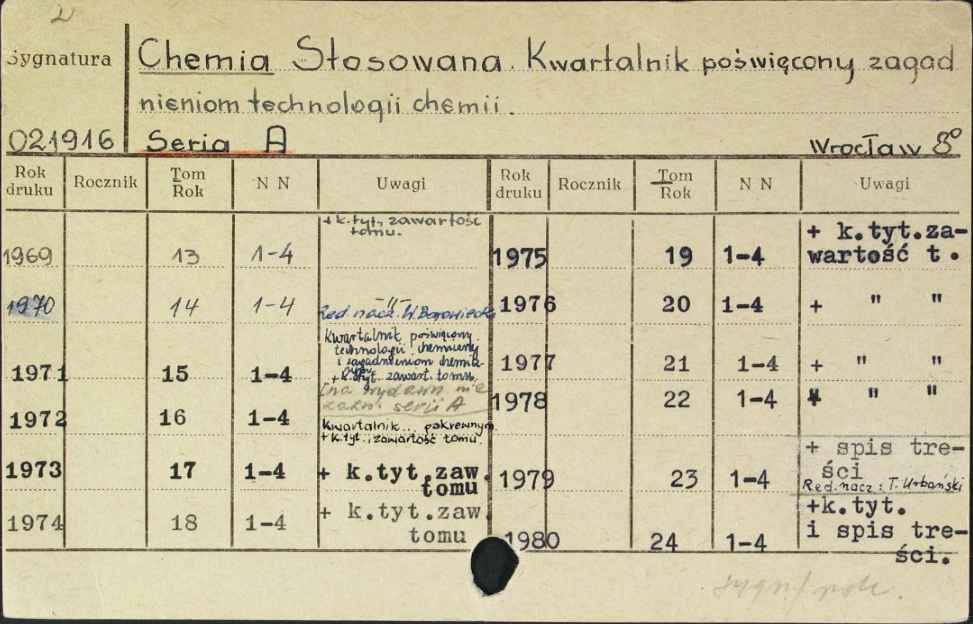 Sygnatura
Chemia Stosowana. Kwartalnik poświęcony zagad
nieniom technologii chemii.
021916 Seria A Wrocław 8°
Rok druku Rocznik Tom Rok N N Uwagi Rok druku Rocznik Tom Rok N N Uwagi
1969 13 1-4 + k.tyt., zawartość tomu.
1970 14 1-4 -"- Red. nacz. W. Borowiecki
1971 15 1-4 Kwartalnik poświęcony technologii chemicznej i zagadnieniom + k.tyt. zawart. tomu
1972 16 1-4 [na wydawn. nie serii A
Kwartalnik... pokrewnym + k.tyt., zawartość tomu.
1973 17 1-4 + k.tyt.zaw. tomu
1974 18 1-4 + k.tyt.zaw. tomu
1975 19 1-4 + k.tyt.za-
wartość t.
1976 20 1-4 + " "
1977 21 1-4 + " "
1978 22 1-4 + " "
1979 23 1-4 + spis tre-
ści
Red. nacz: T. Urbański
1980 24 1-4 +k.tyt.
i spis tre-
ści.